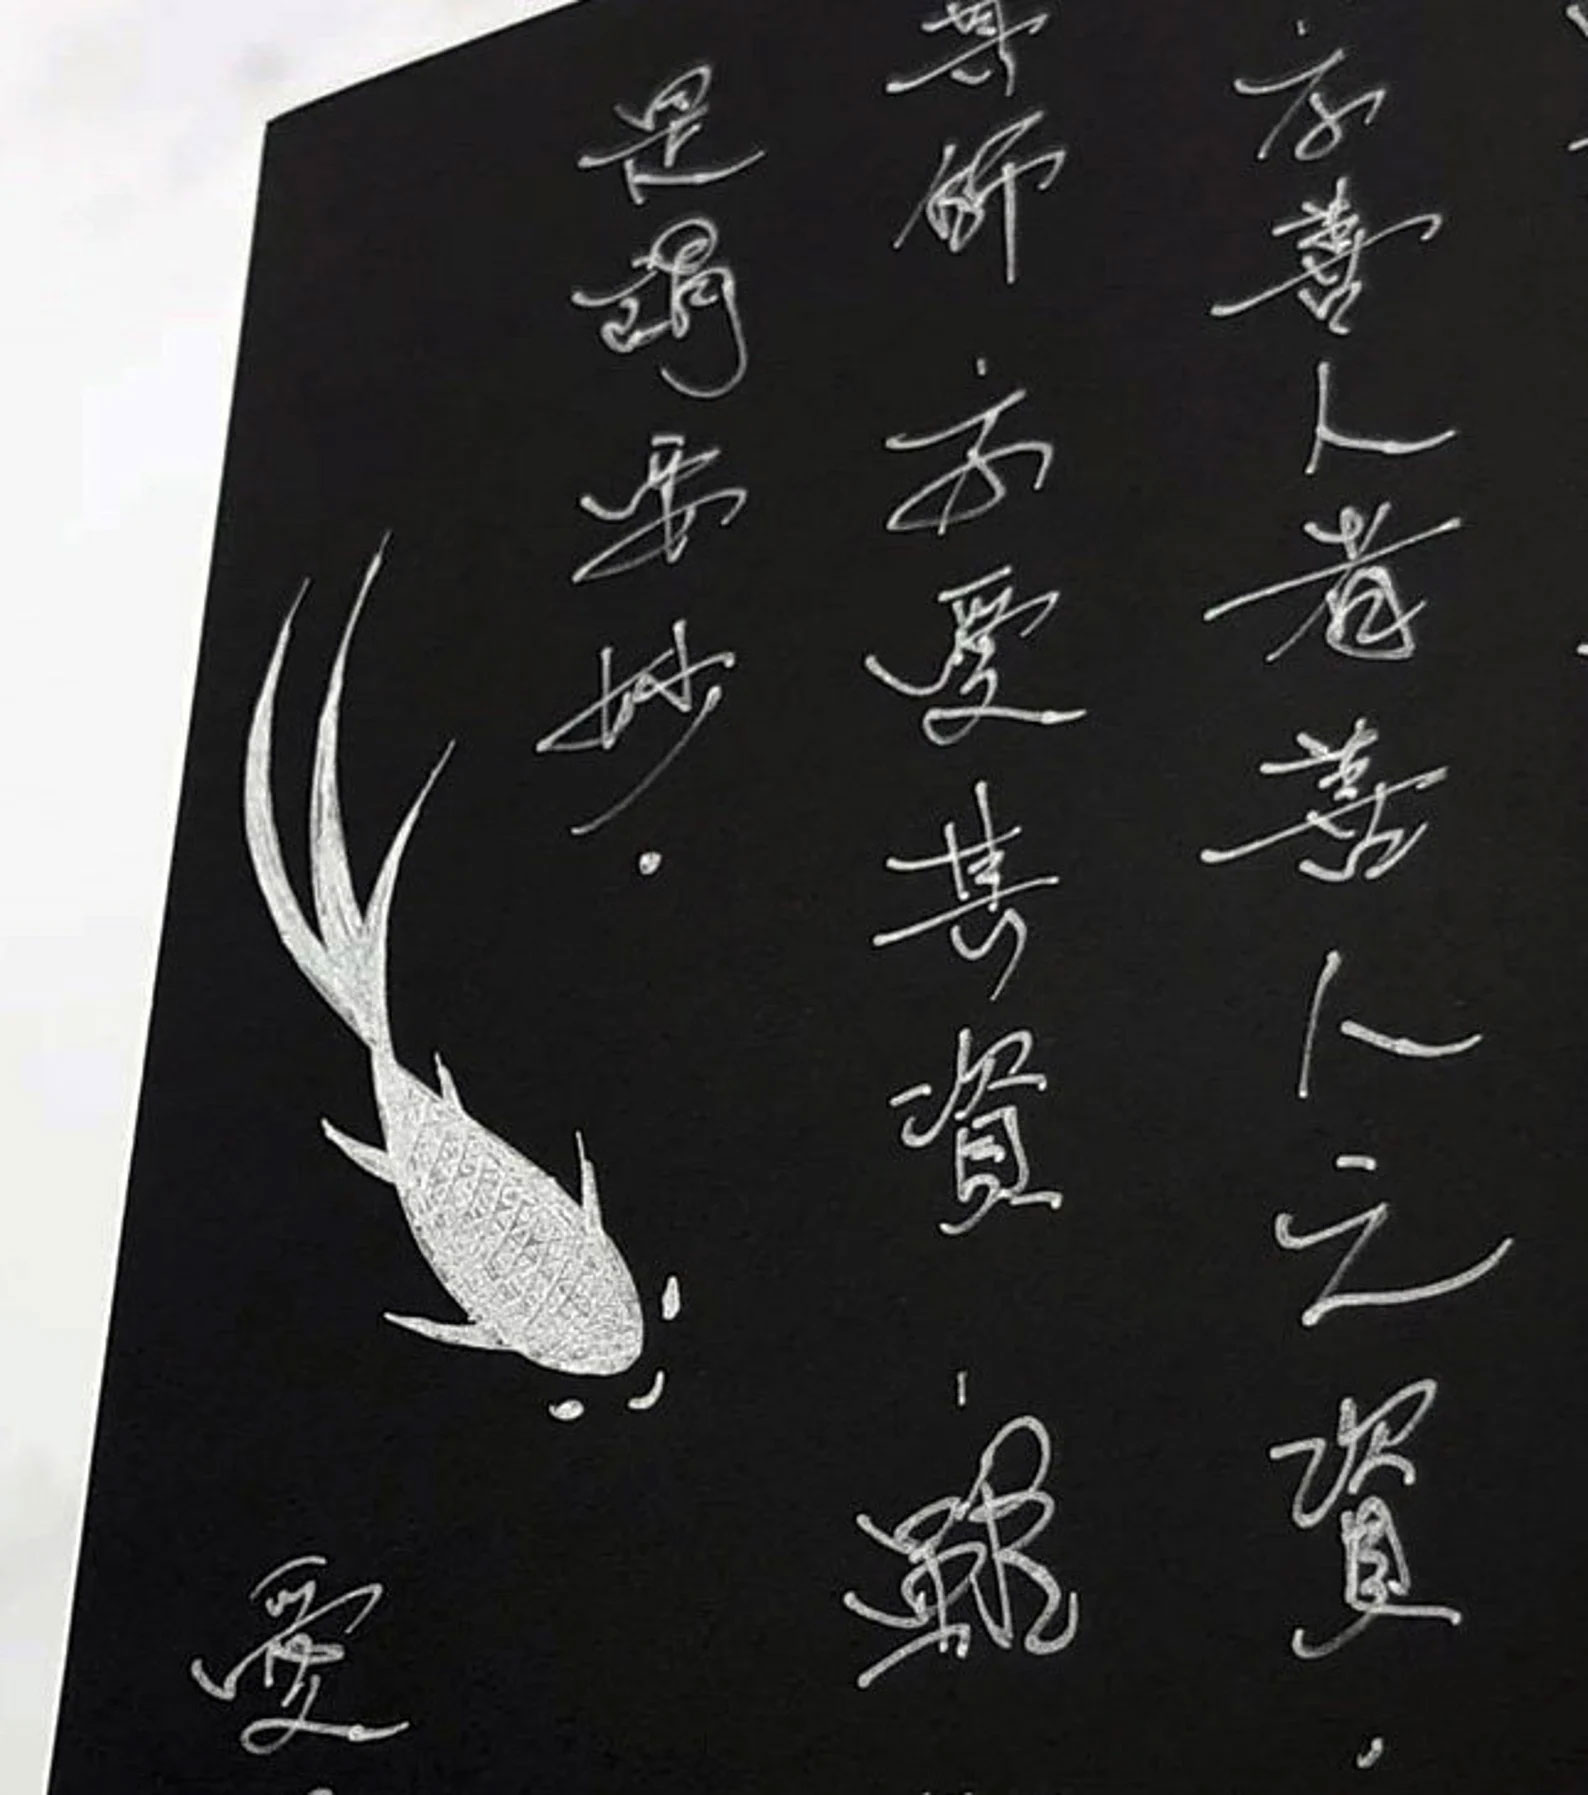 不善人者善人之資.
其師,不愛其資,雖
是謂要妙.
愛